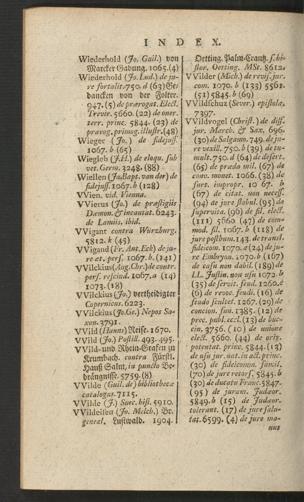 INDEX.
Wiederhold (Jo. Guil.) von
Marcker Gadung. 1065.(4)
Wiederhold (Jo. Lud.) de ju-
re fortalit. 750. d (63) Ge-
dancken von der Folter.
947. (5) de prærogat. Elect.
Trevir. 5660. (22) de oner.
terr. princ. 5844. (23) de
prærog. primog. illustr. (48)
Wieger (Jo.) de fidejuss.
1067. b (65)
Wiegleb (J.H.) de eloqu. sub
vet. Germ. 3248. (88)
Wiellen (Jo. Bapt. van der) de
fidejuss. 1067. b (128)
VVien. vid. Vienna.
VVierus (Jo.) de præstigiis
Dæmon. & incantat. 6243.
de Lamiis. ibid.
VVigant contra Würzburg.
5812. k (45)
VVigand (Fr. Ant. Eck) de ju-
re et. pers. 1067. b. (141)
VVilckius (Aug. Chr.) de contr.
perf. rescind. 1067. a (14)
1073. (18)
VVilckius (Jo.) vertheidigter
Copernicus. 6223.
VVilckius (Jo. Ge.) Nepos Sa-
xon. 3791.
VVild (Hanns) Reise. 1670.
VVild (Jo.) Postill. 493. 495.
VVild- und Rhein-Grafen zu
Krumbach. contra Fürstl.
Hauß Salm, in puncto Be-
drängnisse. 5759. (8)
VVilde (Guil. de) bibliothecæ
catalogus. 7115.
VVilde (J.) Suec. hist. 5910.
VVildeisen (Jo. Melch.) Be-
geneal. Lustwald. 1904
Oetting. Palm-Crantz. f. hi-
stor. Oetting. MSt. 8612.
VVilder (Mich.) de revis. jur.
com. 1070. b (133) 5561.
(51) 5845. b (69)
VVildfchuz (Sever.) epistolæ,
7397.
VVildvogel (Christ.) de diff.
jur. March. & Sax. 696.
(30) de Salgamn. 749. de ju-
re vexill. 750. b (39) de tu-
mult. 750. d (64) de desert.
(65) de præda mil. (67) de
conv. monet. 1066. (38) de
jure. improp. 1067. b
(67) de citat. non necess.
(94) de jure stabul. (95) de
supervita. (96) de fil. elect.
(111) 5660 (47) de com-
mod. fil. 1067. b (118) de
jure posthum. 143. de transl.
fideicom. 1070. a (24) de ju-
re Embryon. 1070. b (167)
de usu non dabil. (189) de
LL. Justin. non usu 1072. b
(35) de servit. feud. 1260. d
(6) de revoc. feudi. (16) de
feudo scultet. 1267. (29) de
concion. fun. 1385. (12) de
proc. publ. eccl. (13) de buc-
cin. 3756. (10) de unione
elect. 5660. (44) de orig.
potentat. princ. 5844. (13)
de usu jur. ant. in act. princ.
(30) de fideicomm. famil.
(70) de jure retorf. 5845. b
(30) de ducatu Franc. 5847.
(95) de juram. Judæor.
5849. b (15) de Judæor.
tolerant. (17) de jure salu-
tat. 6599. (4) de jure ma-
nus